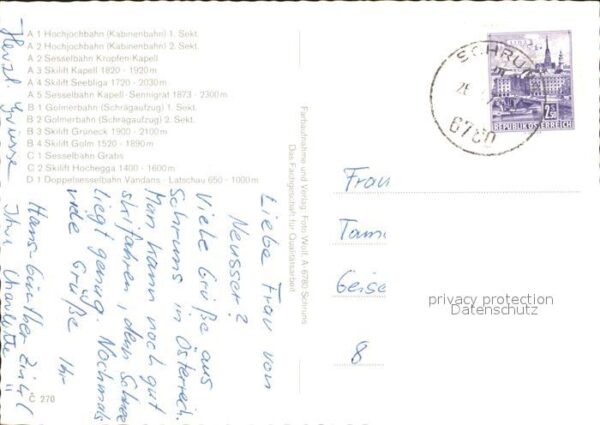 A 1 Hochjochbahn (Kabinenbahn) 1. Sekt.
A 2 Hochjochbahn (Kabinenbahn) 2. Sekt.
A 2 Sesselbahn Kropfen-Kapell
A 3 Skilift Kapell 1820 - 1920 m
A 4 Skilift Seebliga 1720 - 2030 m
A 5 Sesselbahn Kapell-Sennigrat 1873 - 2300 m
B 1 Golmerbahn (Schrägaufzug) 1. Sekt.
B 2 Golmerbahn (Schrägaufzug) 2. Sekt.
B 3 Skilift Grüneck 1900 - 2100 m
B 4 Skilift Golm 1520 - 1890 m
C 1 Sesselbahn Grabs
C 2 Skilift Hochegga 1400 - 1600 m
D 1 Doppelsesselbahn Vandans - Latschau 650 - 1000 m
Liebe Frau von
Neusser?
Viele Grüße aus
Schruns in Österreich.
Man kann noch gut
skifahren, denn Schnee
liegt genug. Nochmals
viele Grüße
Ihr
Hans-Günther
Herzl. Grüsse
Ihre Charlotte
Č 270
Farbaufnahme und Verlag: Foto Wolf, A-6780 Schruns
Das Fachgeschäft für Qualitätsarbeit
SCHRUNS
6780
2.50
REPUBLIK ÖSTERREICH
Frau
Tam
Geise
8
privacy protection
Datenschutz